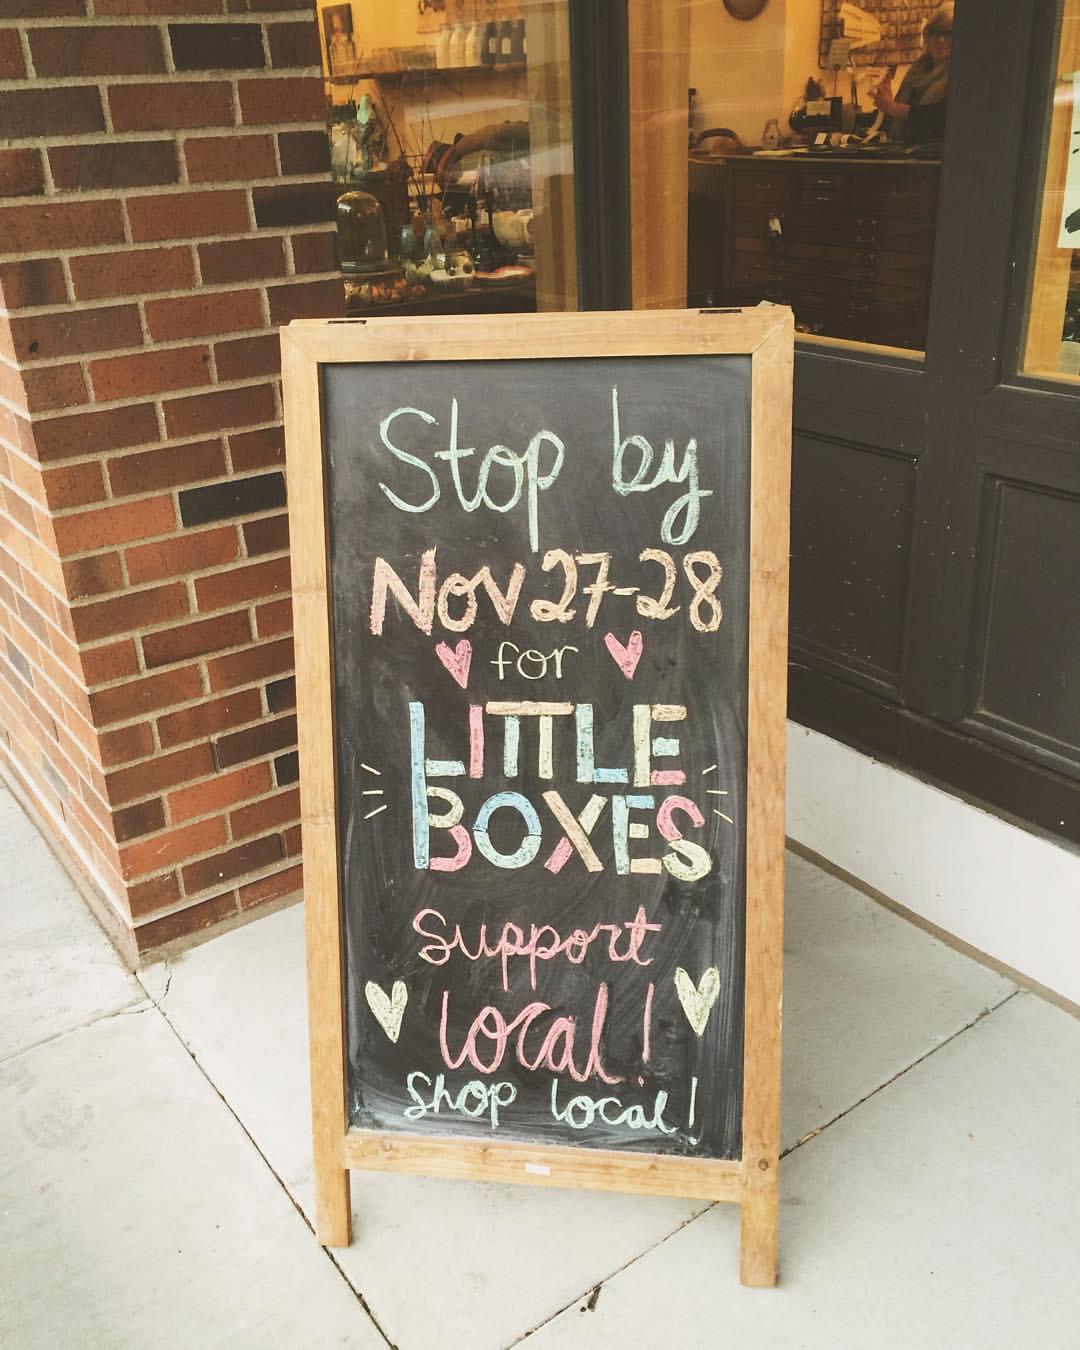 Stop by
Nov 27-28
for
LITTLE
BOXES
Support
local!
Shop local!